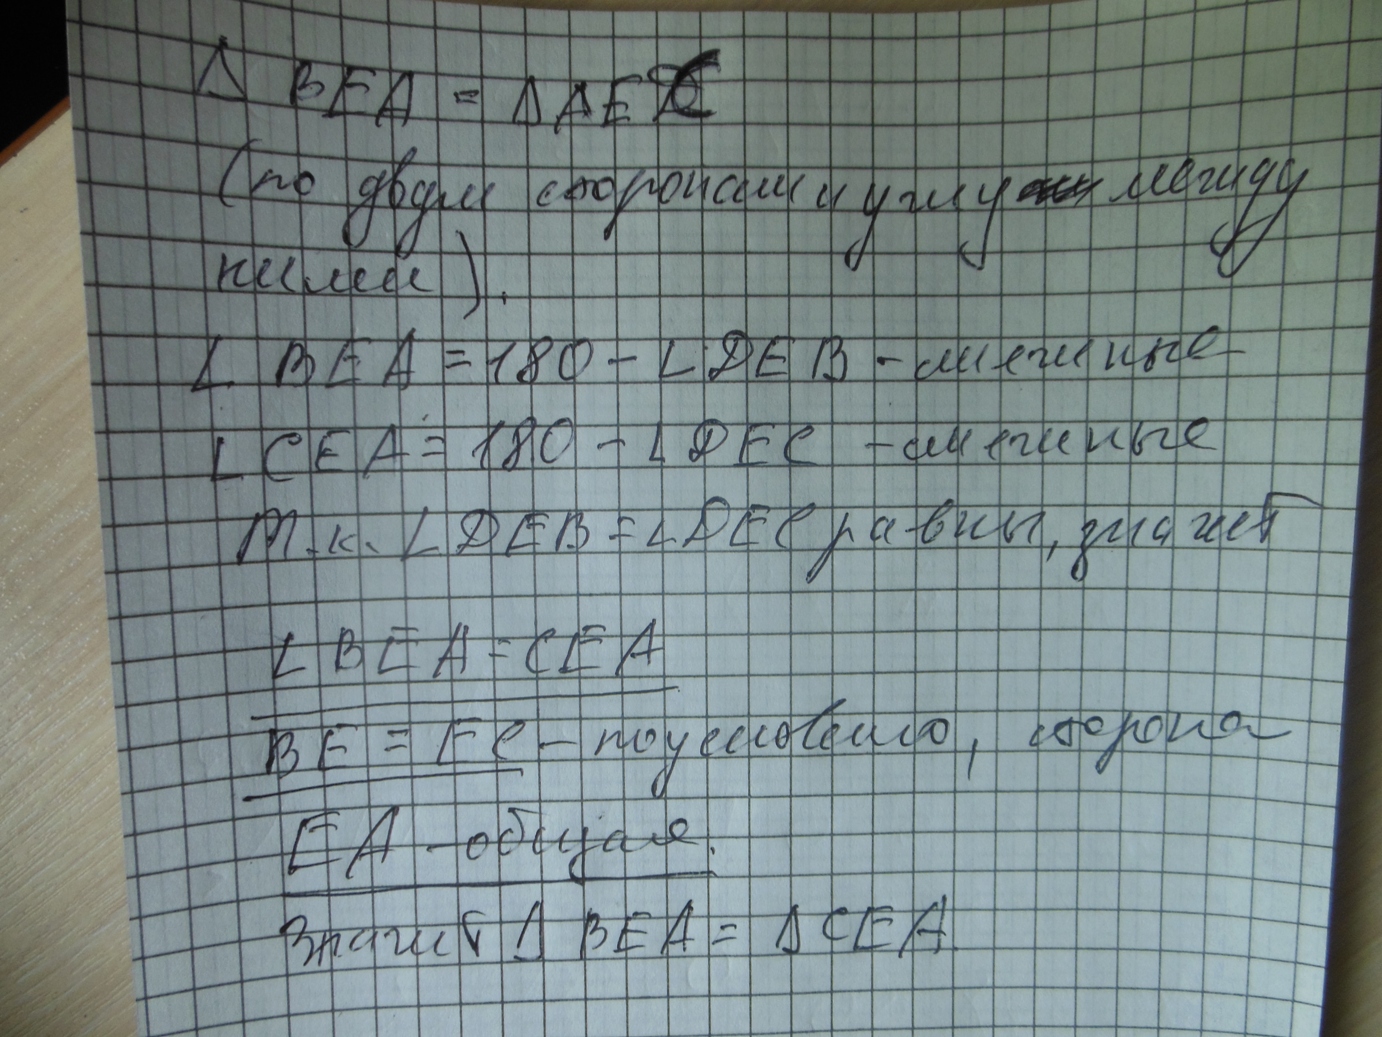 Δ BEA = Δ AEC
(по двум сторонам и углу между
ними).
∠ BEA = 180 - ∠ DEB - смежные
∠ CEA = 180 - ∠ DEC - смежные
т.к. ∠ DEB = ∠ DEC равны, значит
∠ BEA = CEA
BE = EC - по условию, сторона
EA - общая.
Значит Δ BEA = Δ CEA.